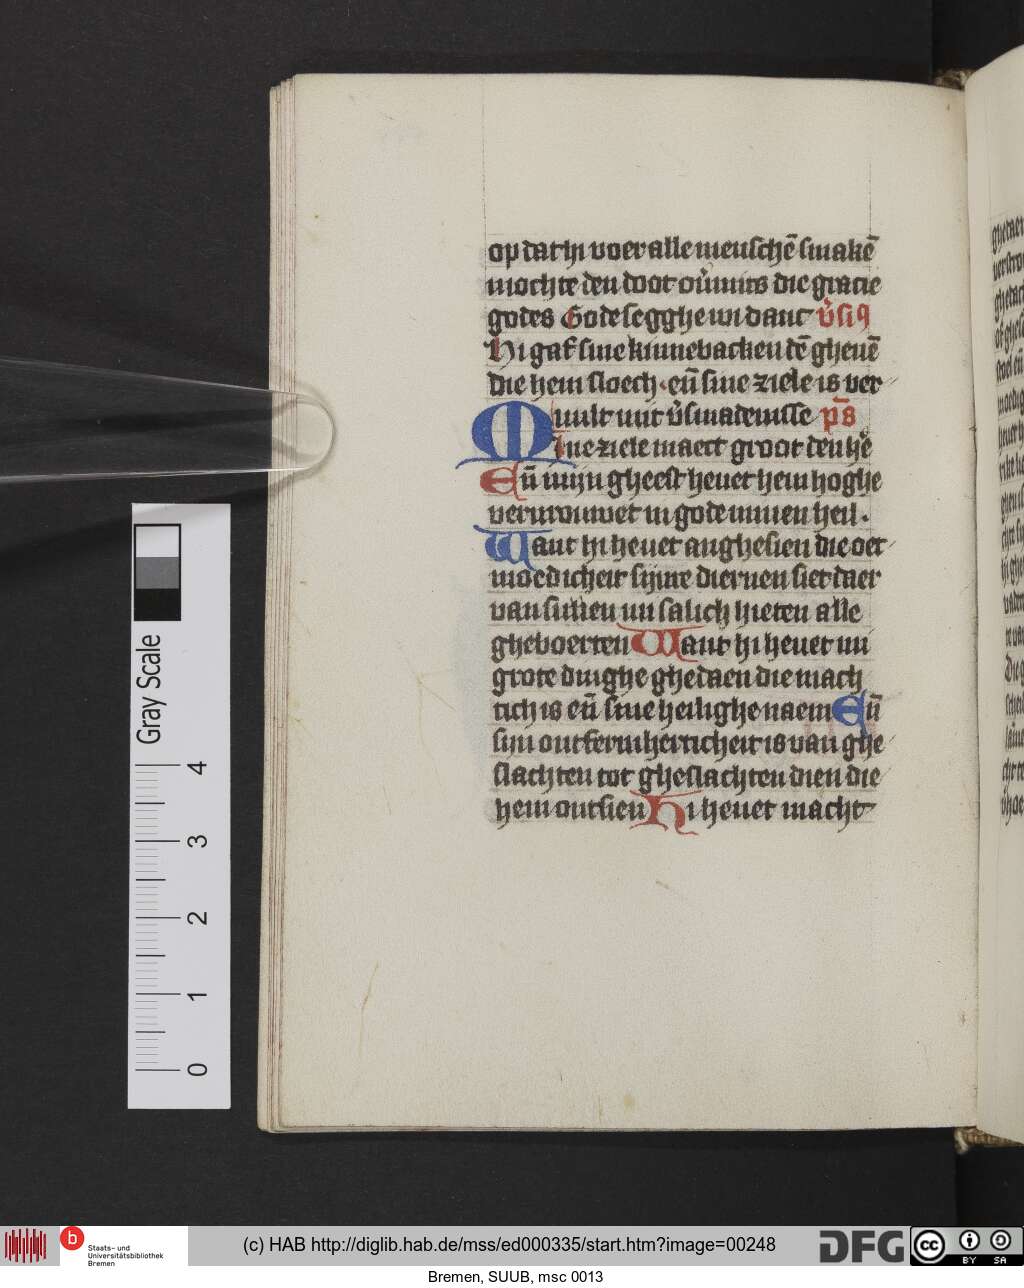 op dat hi voer alle menschē smakē
mochte den doot ou̕mits die gracie
godes Gode segghe wi danc v̕siq̨
Hi gaf sine kinnebacken dē gheuē
die hem sloech · eñ sine ziele is ver
uult mit v̕smadenisse ps̄
Mine ziele maect groot den hē
Eñ mijn gheest heuet hem hoghe
vervrouwet in gode minen heil ·
Want hi heuet anghesien die oet
moedicheit sijnre diernen siet daer
van sullen mi salich hieten alle
gheboerten Want hi heuet mi
grote dinghe ghedaen die mach
tich is eñ sine heilighe naem Eñ
sijn ontfermherticheit is van ghe
slachten tot gheslachten dien die
hem ontsien Hi heuet macht
Gray Scale
4
3
2
1
0
b
Staats- und
Universitätsbibliothek
Bremen
(c) HAB http://diglib.hab.de/mss/ed000335/start.htm?image=00248
DFG
cc
BY SA
Bremen, SUUB, msc 0013